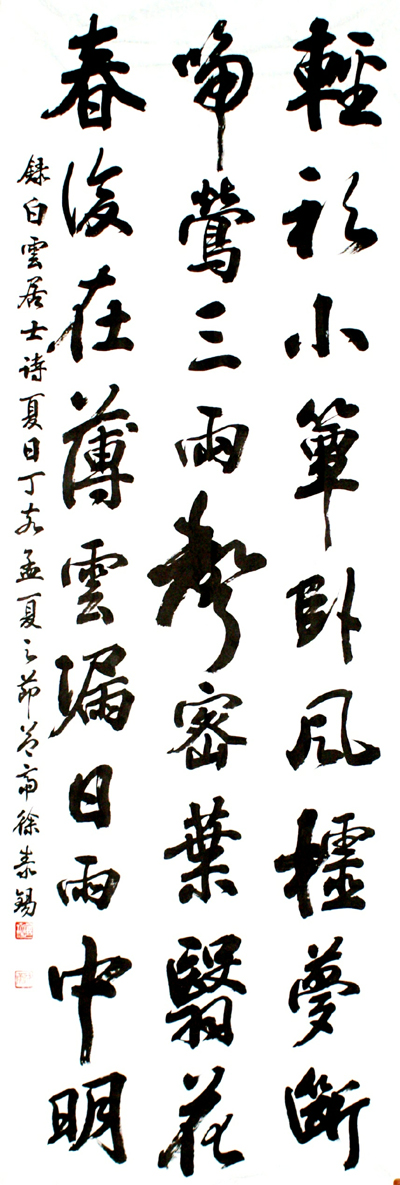 輕衫小簟卧風櫺夢斷
啼鶯三兩聲密葉翳花
春後在薄雲漏日雨中明
録白雲居士诗夏日丁亥孟夏之節齋徐泰錫